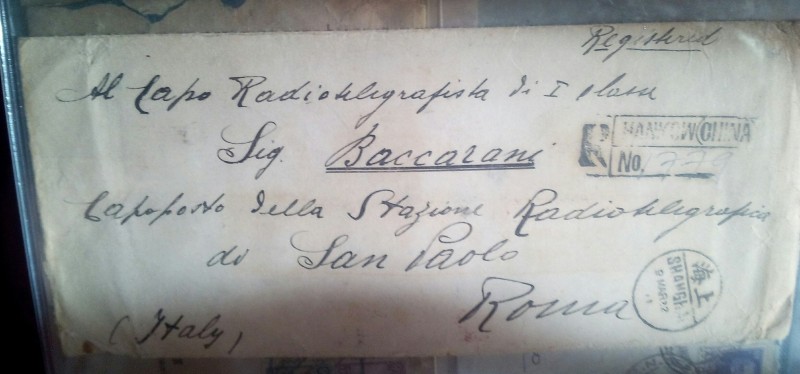 Registered
Al Capo Radiotelegrafista di I classe
Sig. Baccarani
R HANKOW (CHINA)
No. 779
Capoposto della Stazione Radiotelegrafica
di San Paolo
Roma
(Italy)
上海
SHANGHAI
MAR 22